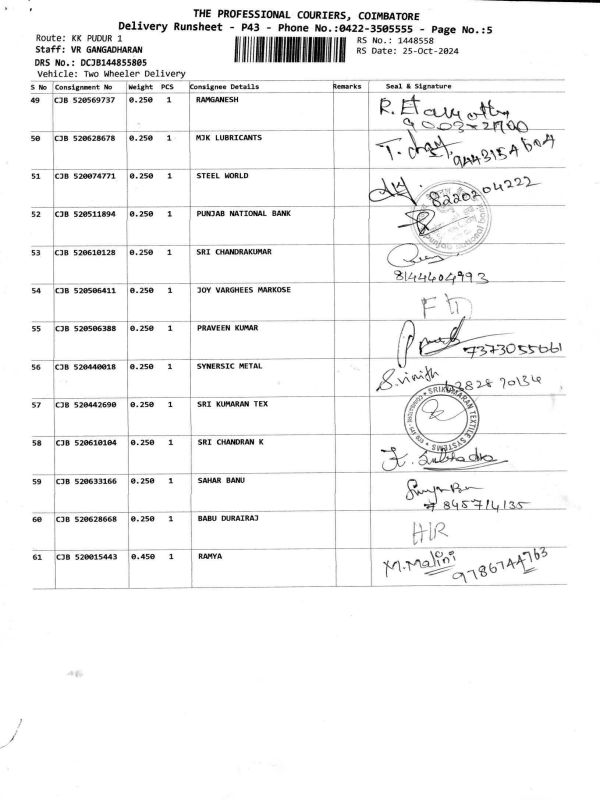 THE PROFESSIONAL COURIERS, COIMBATORE
Delivery Runsheet - P43 - Phone No.:0422-3505555 - Page No.:5
Route: KK PUDUR 1 RS No.: 1448558
Staff: VR GANGADHARAN RS Date: 25-Oct-2024
DRS No.: DCJB144855805
Vehicle: Two Wheeler Delivery
S No Consignment No Weight PCS Consignee Details Remarks Seal & Signature
49 CJB 520569737 0.250 1 RAMGANESH
50 CJB 520628678 0.250 1 MJK LUBRICANTS
51 CJB 520074771 0.250 1 STEEL WORLD 8220204222
52 CJB 520511894 0.250 1 PUNJAB NATIONAL BANK punjab national bank
53 CJB 520610128 0.250 1 SRI CHANDRAKUMAR
8144404993
54 CJB 520506411 0.250 1 JOY VARGHEES MARKOSE
55 CJB 520506388 0.250 1 PRAVEEN KUMAR
7373055661
56 CJB 520440018 0.250 1 SYNERSIC METAL S.vinith
57 CJB 520442690 0.250 1 SRI KUMARAN TEX SRI KUMARAN TEXTILE SYSTEMS
58 CJB 520610104 0.250 1 SRI CHANDRAN K
59 CJB 520633166 0.250 1 SAHAR BANU
7845714135
60 CJB 520628668 0.250 1 BABU DURAIRAJ H/R
61 CJB 520015443 0.450 1 RAMYA M.Malini
9786744763